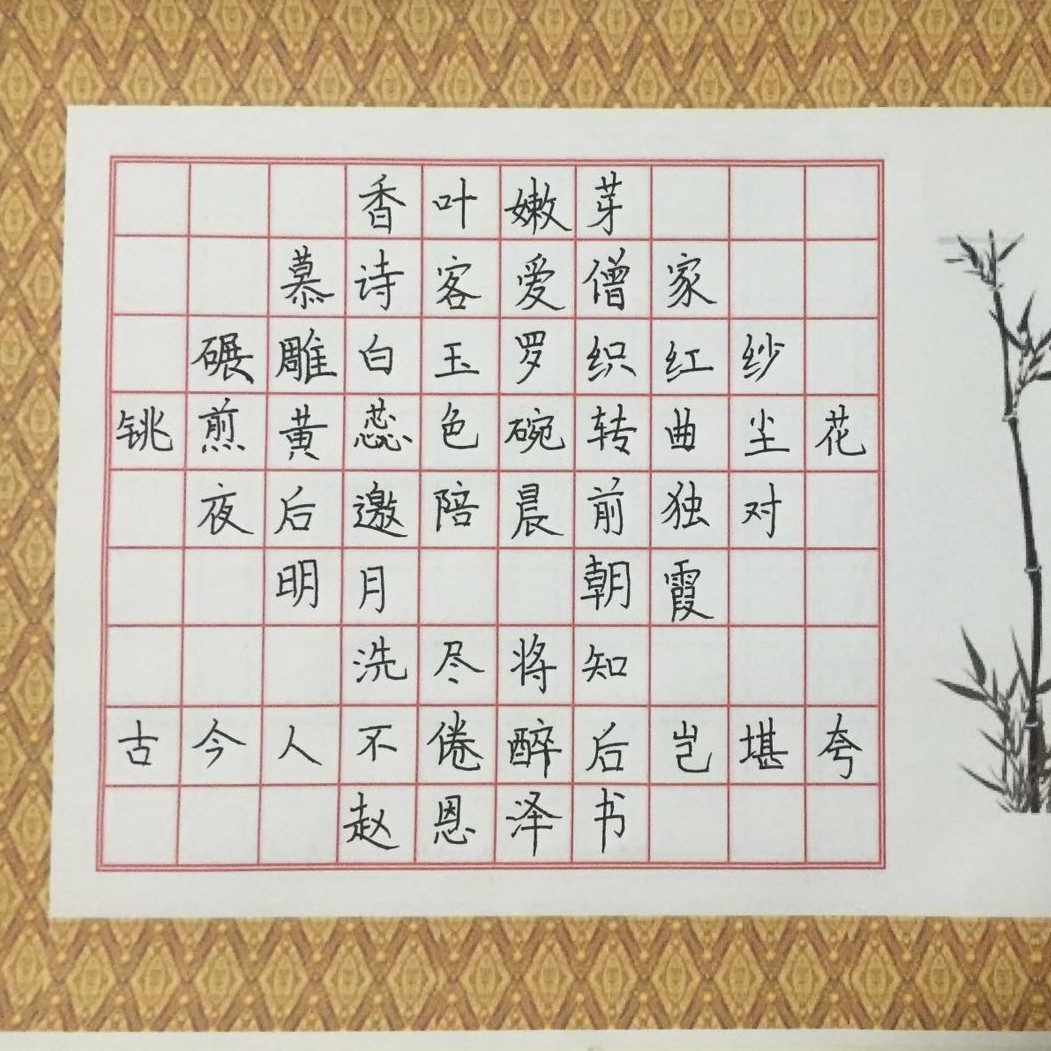 香叶嫩芽
慕诗客爱僧家
碾雕白玉罗织红纱
铫煎黄蕊色碗转曲尘花
夜后邀陪晨前独对
明月 朝霞
洗尽将知
古今人不倦醉后岂堪夸
赵恩泽书